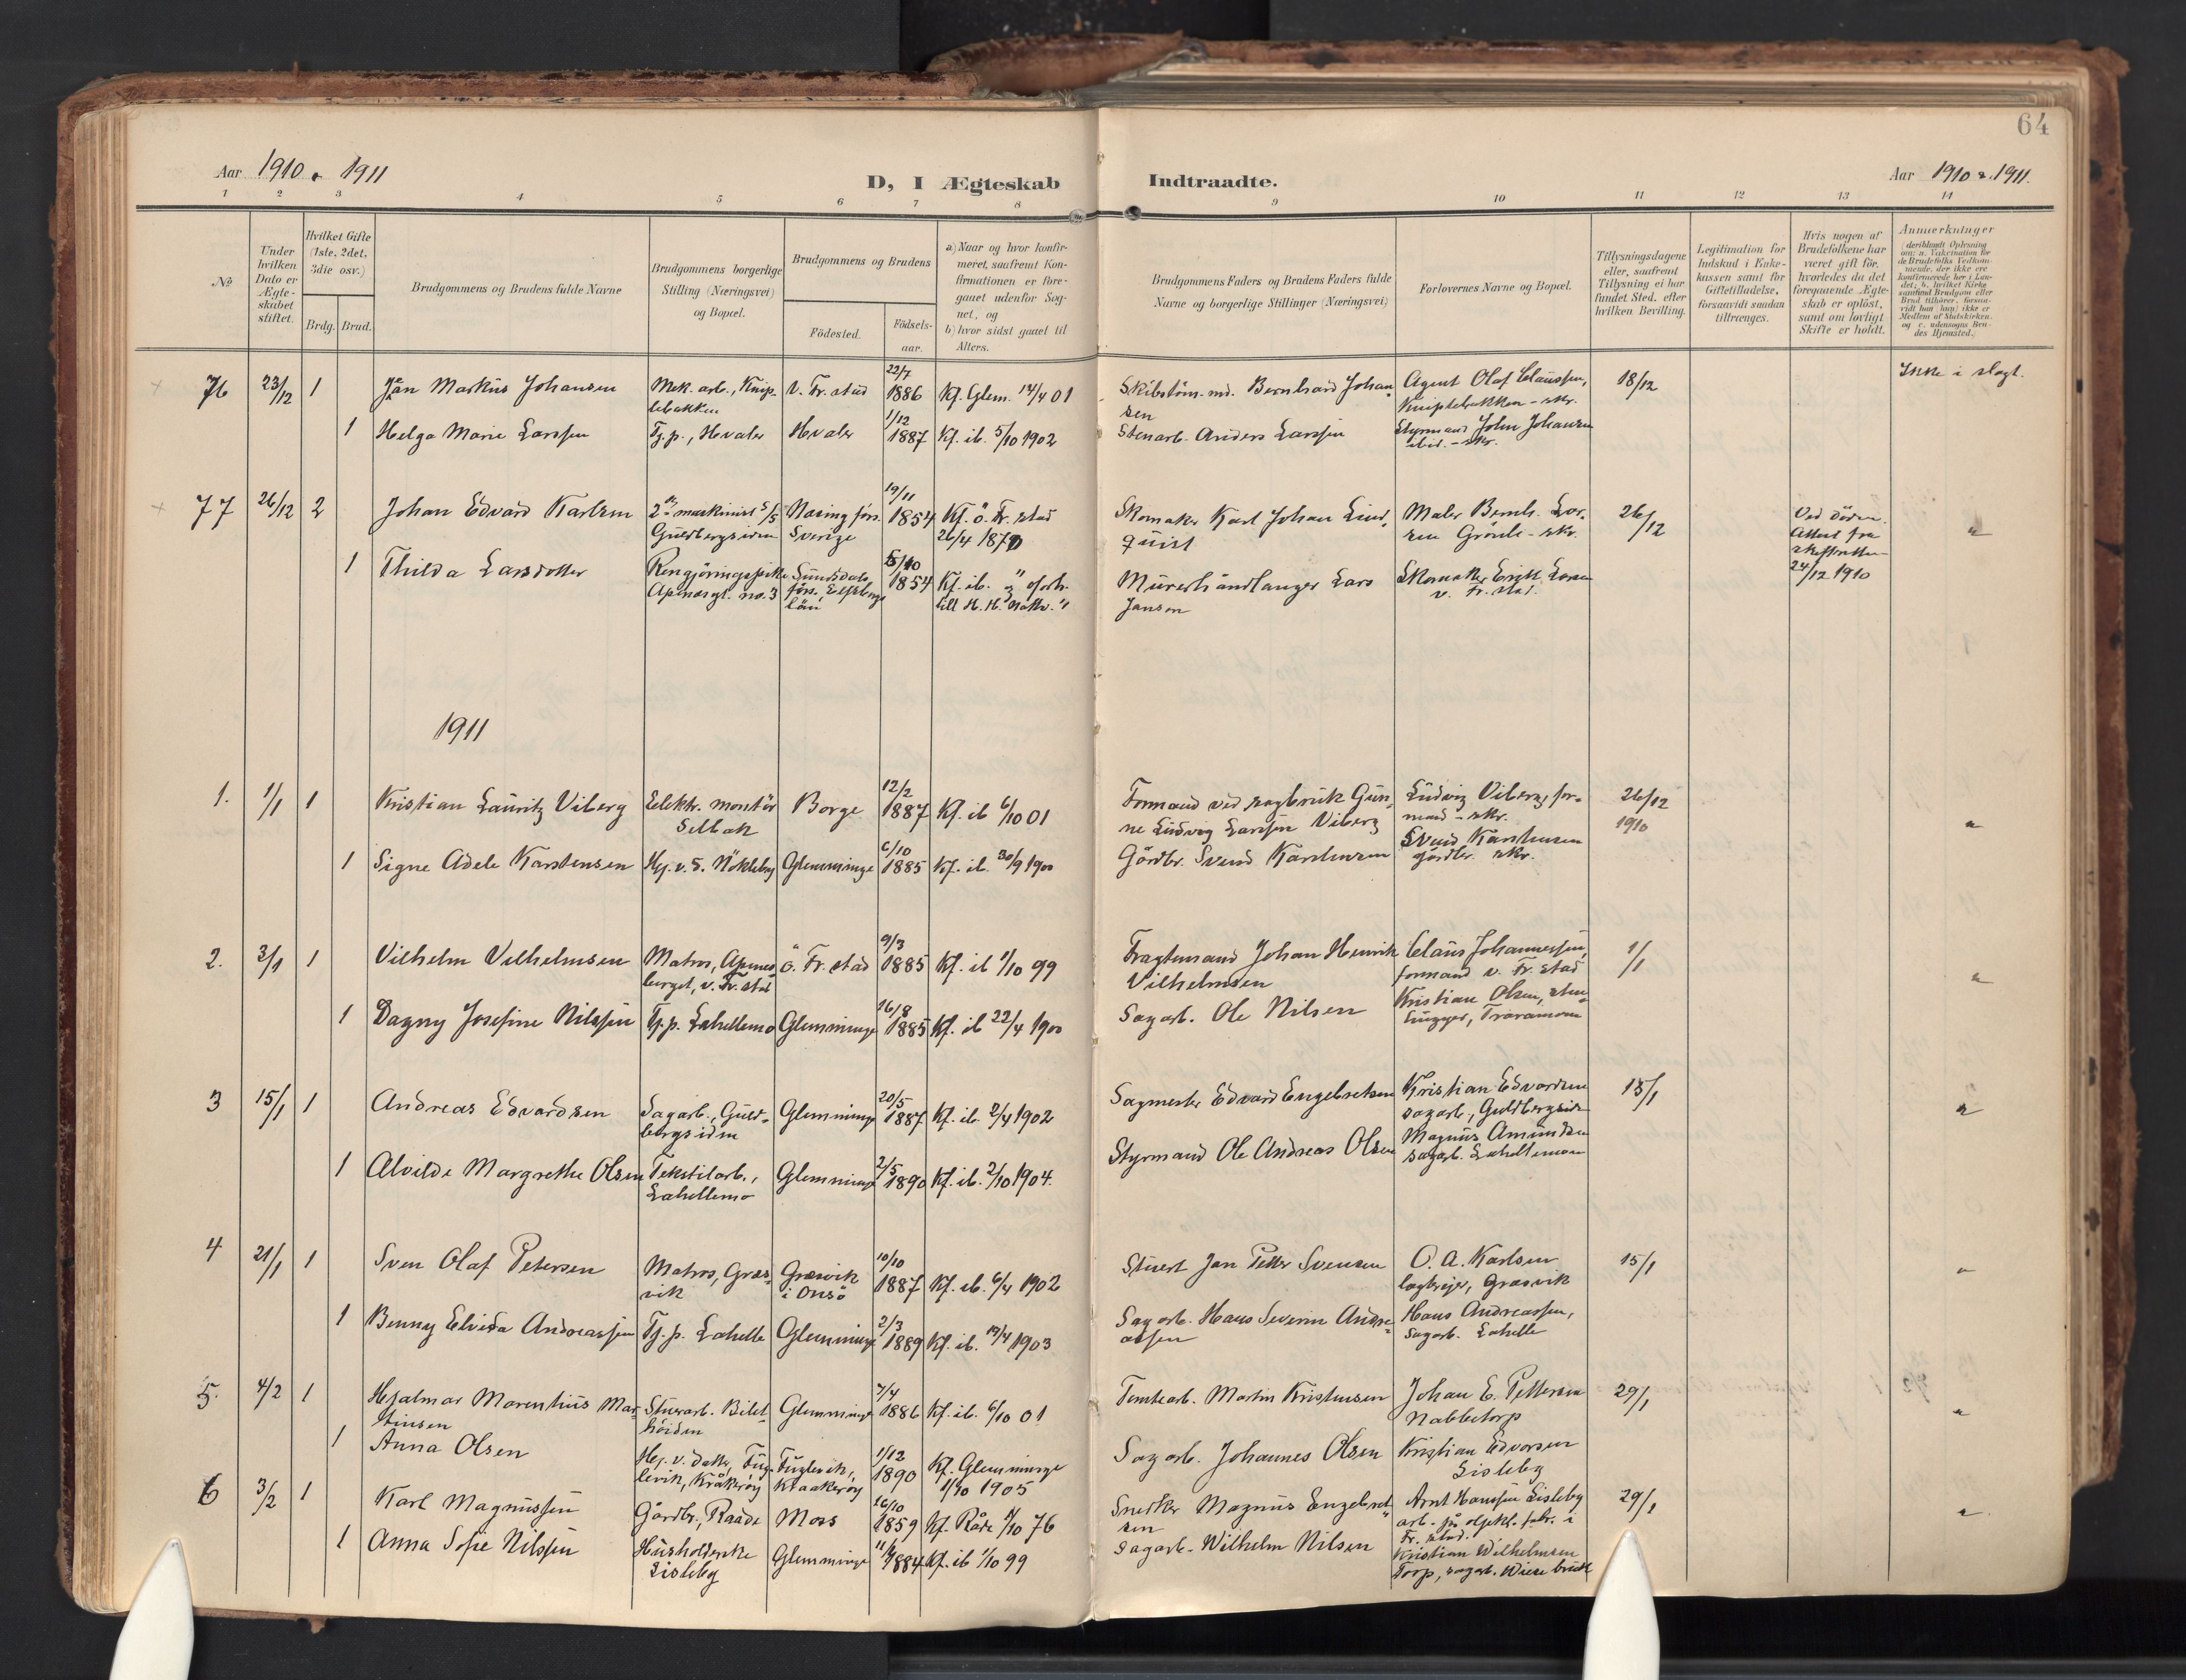 64
Aar 1910 & 1911
D, I Ægteskab Indtraadte.
Aar 1910 & 1911.
1 2 3 4 5 6 7 8 9 10 11 12 13 14
No
Under hvilken Dato er Ægteskabet stiftet.
Hvilket Gifte (1ste, 2det, 3die osv.)
Brdg. Brud.
Brudgommens og Brudens fulde Navne
Brudgommens borgerlige Stilling (Næringsvei) og Bopæl.
Brudgommens og Brudens
Födested.
Födselsaar.
a) Naar og hvor konfirmeret, saafremt Konfirmationen er foregaaet udenfor Sognet, og
b) hvor sidst gaaet til Alters.
Brudgommens Faders og Brudens Faders fulde Navne og borgerlige Stillinger (Næringsvei)
Forlovernes Navne og Bopæl.
Tillysningsdagene eller, saafremt Tillysning ei har fundet Sted, efter hvilken Bevilling.
Legitimation for Indskud i Enkekassen samt for Giftetilladelse, forsaavidt saadan tiltrænges.
Hvis nogen af Brudefolkene har været gift för, hvorledes da det foregaaende Ægteskab er oplöst, samt om lovligt Skifte er holdt.
Anmærkninger
76 23/12 1 Jan Markus Johansen Mek. arb., Kniplebakken v. Fr.stad 22/7 1886 Kf. Glem. 14/4 01 Skibstöm.md. Bernhard Johansen Agent Olaf Claussen, Kniplebakken - skr. 18/12 Ikke i slegt.
1 Helga Marie Larssen Tj.p., Hvaler Hvaler 1/12 1887 Kf. ib. 5/10 1902 Stenarb. Anders Larssen Styrmand John Johansen ibid. - skr.
77 26/12 2 Johan Edvard Karlsen 2den maskinist Guldbergsiden Sverige 19/11 1854 Kf. ö. Fr.stad 26/4 1870 Skomaker Karl Johan Lindquist Maler Bernh. Larsen Grönli - skr. 26/12 Ved döden. Attest fra skifteretten 24/12 1910 "
1 Thilda Larsdotter Rengjöringspike Apenæsgt. no. 3 Sundsdals förs., Elfsborgs län 5/10 1854 Kf. ib. Murerhåndlanger Lars Janson Skomaker Erik Larsen v. Fr.stad.
1911
1. 1/1 1 Kristian Lauritz Viberg Elektr. montör Selbak Borge 12/2 1887 Kf. ib 6/10 01 Formand ved sagbruk Gunne Ludvig Larssen Viberg Ludvig Viberg, formand - skr. 26/12 1910 "
1 Signe Adele Karstensen Hj. v. S. Nökleby Glemminge 6/10 1885 Kf. ib. 30/9 1900 Gårdbr. Svend Karstensen Svend Karstensen gårdbr. skr.
2. 3/1 1 Vilhelm Vilhelmsen Matros, Apenesberget, v. Fr.stad ö. Fr.stad 9/3 1885 Kf. ib 1/10 99 Fragtemand Johan Henrik Vilhelmsen Claus Johannessen, formand v. Fr.stad 1/1 "
1 Dagny Josefine Nilssen Tj.p. Lahellemo Glemminge 16/8 1885 Kf. ib 22/4 1900 Sagarb. Ole Nilsen Kristian Olsen, stenhugger, Traramoen
3 15/1 1 Andreas Edvardsen Sagarb., Guldbergsiden Glemminge 20/5 1887 Kf. ib. 2/4 1902 Sagmester Edvard Engebretsen Kristian Edvardsen sagarb., Guldbergsiden 15/1 "
1 Alvilde Margrethe Olsen Tekstilarb., Lahellemo Glemminge 2/5 1890 Kf. ib. 2/10 1904. Styrmand Ole Andreas Olsen Magnus Amundsen sagarb. Lahellemoen
4 21/1 1 Sven Olaf Petersen Matros, Græsvik Græsvik i Onsö 10/10 1887 Kf. ib. 6/4 1902 Stuert Jan Petter Svensen O. A. Karlsen Græsvik 15/1 "
1 Benny Elvida Andreassen Tj.p. Lahelle Glemminge 2/3 1889 Kf. ib. 19/4 1903 Sagarb. Hans Severin Andreassen Hans Andreassen, Sagarb. Lahelle
5. 4/2 1 Hjalmar Marentius Martinsen Stuerarb. Bilethöiden Glemminge 7/4 1886 Kf. ib. 6/10 01 Tomtearb. Martin Kristensen Johan E. Pettersen Nabbetorp 29/1 "
1 Anna Olsen Hj. v. datter, Fuglevik, Kråkeröy Fuglevik, Kraakeröy 1/12 1890 Kf. Glemminge 1/10 1905 Sagarb. Johannes Olsen Kristian Edvarsen Lisleby
6 3/2 1 Karl Magnussen Gårdbr., Raade Moss 26/10 1859 Kf. Råde 1/10 76 Snedker Magnus Engebretsen Arnt Hanssen Lisleby arb. på oljekl. fabr. i Fr.stad. 29/1 "
1 Anna Sofie Nilssen Husholderske Lisleby Glemminge 1884 Kf. ib 1/10 99 Sagarb. Wilhelm Nilsen Kristian Wilhelmsen Torp, sagarb. Wiese bruk